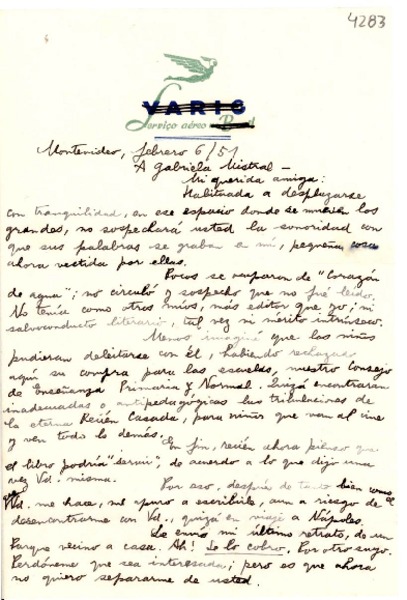 4283
VARIG
Serviço aéreo
Montevideo, febrero 6/51
A Gabriela Mistral —
Mi querida amiga:
Habituada a desplazarse
con tranquilidad, en ese espacio donde se mueven los
grandes, no sospechará usted la sonoridad con
que sus palabras se graban a mí, pequeña cosa
ahora vestida por ellas.
Pocos se ocuparon de "Corazón
de agua"; no circuló y sospecho que no fué leído.
No tenía como otros míos, más editor que yo; ni
salvoconducto literario, tal vez ni mérito intrínseco.
Menos imaginé que los niños
pudieran deleitarse con Él, habiendo rechazado
aquí su compra para las escuelas, nuestro Consejo
de Enseñanza Primaria y Normal. Quizá encontraran
inadecuadas o antipedagógicas las tribulaciones de
la eterna Recién Casada, para niños que van al cine
y ven todo lo demás.
En fin, recién ahora pienso que
el libro podría "servir", de acuerdo a lo que dijo una
vez Vd. misma.
Por eso, después de tanto bien como
Vd. me hace, me apuro a escribirle, aun a riesgo de
desencontrarme con Vd., quizá en viaje a Nápoles.
Le envío mi último retrato, de un
Parque vecino a casa. Ah! Se lo cobro. Por otro suyo.
Perdóneme que sea interesada; pero es que ahora
no quiero separarme de usted.